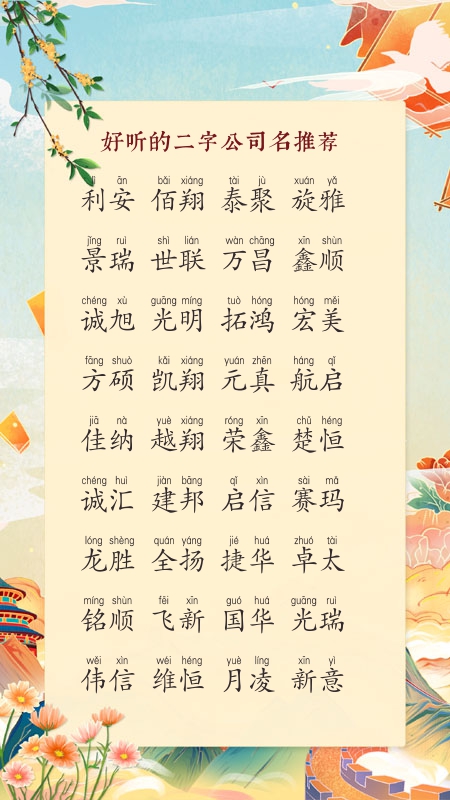 好听的二字公司名推荐
lì ān bǎi xiáng tài jù xuán yǎ
利安 佰翔 泰聚 旋雅
jǐng ruì shì lián wàn chāng xīn shùn
景瑞 世联 万昌 鑫顺
chéng xù guāng míng tuò hóng hóng měi
诚旭 光明 拓鸿 宏美
fāng shuò kǎi xiáng yuán zhēn háng qǐ
方硕 凯翔 元真 航启
jiā nà yuè xiáng róng xīn chǔ héng
佳纳 越翔 荣鑫 楚恒
chéng huì jiàn bāng qǐ xìn sài mǎ
诚汇 建邦 启信 赛玛
lóng shèng quán yáng jié huá zhuó tài
龙胜 全扬 捷华 卓太
míng shùn fēi xīn guó huá guāng ruì
铭顺 飞新 国华 光瑞
wěi xìn wéi héng yuè líng xīn yì
伟信 维恒 月凌 新意